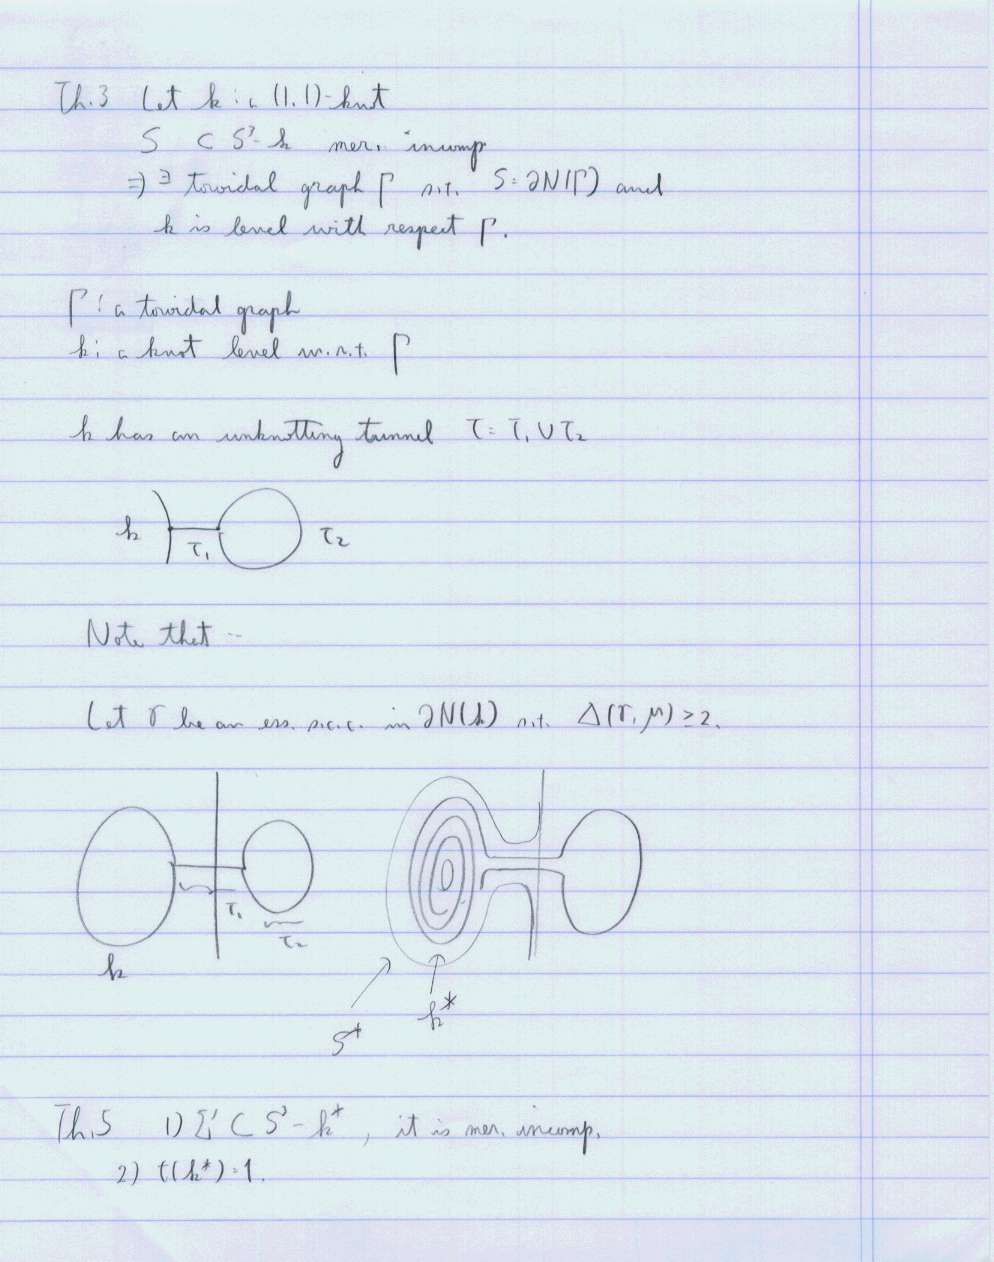 Th.3 Let k : a (1,1)-knot
S ⊂ S³-k mer. incomp
⇒ ∃ toroidal graph Γ s.t. S=∂N(Γ) and
k is level with respect Γ.
Γ : a toroidal graph
k : a knot level w.r.t. Γ
k has an unknotting tunnel τ = τ₁ ∪ τ₂
k τ₁ τ₂
Note that --
Let γ be an ess. s.c.c. in ∂N(k) s.t. Δ(γ, μ) ≥ 2.
τ₁
τ₂
k
k*
S*
Th.5 1) Σ' ⊂ S³-k*, it is mer. incomp.
2) t(k*)=1.